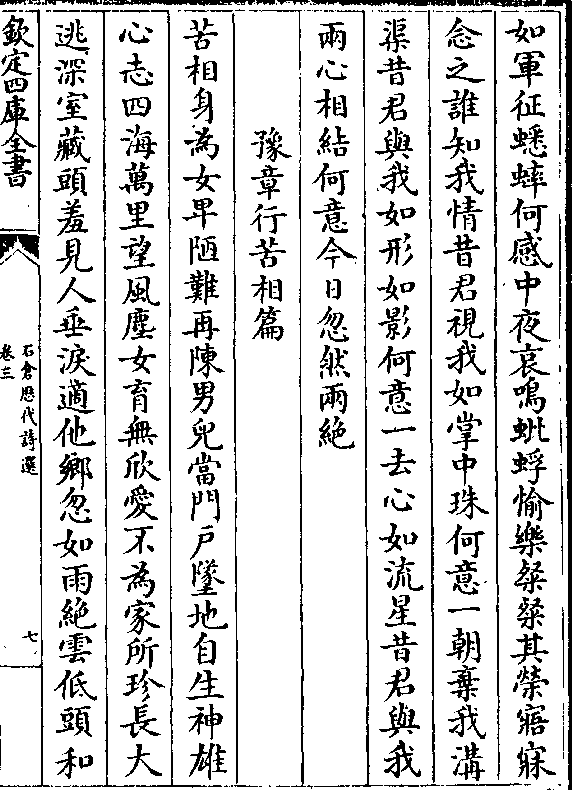 如軍征蟋蟀何感中夜哀鳴蚍蜉愉樂粲粲其榮寤寐
念之誰知我情昔君視我如掌中珠何意一朝棄我溝
渠昔君與我如形如影何意一去心如流星昔君與我
兩心相結何意今日忽然兩絶
豫章行苦相篇
苦相身為女卑陋難再陳男兒當門戶墮地自生神雄
心志四海萬里望風塵女育無欣愛不為家所珍長大
逃深室藏頭羞見人垂淚適他鄉忽如雨絶雲低頭和
欽定四庫全書
石倉歴代詩選
卷三
七